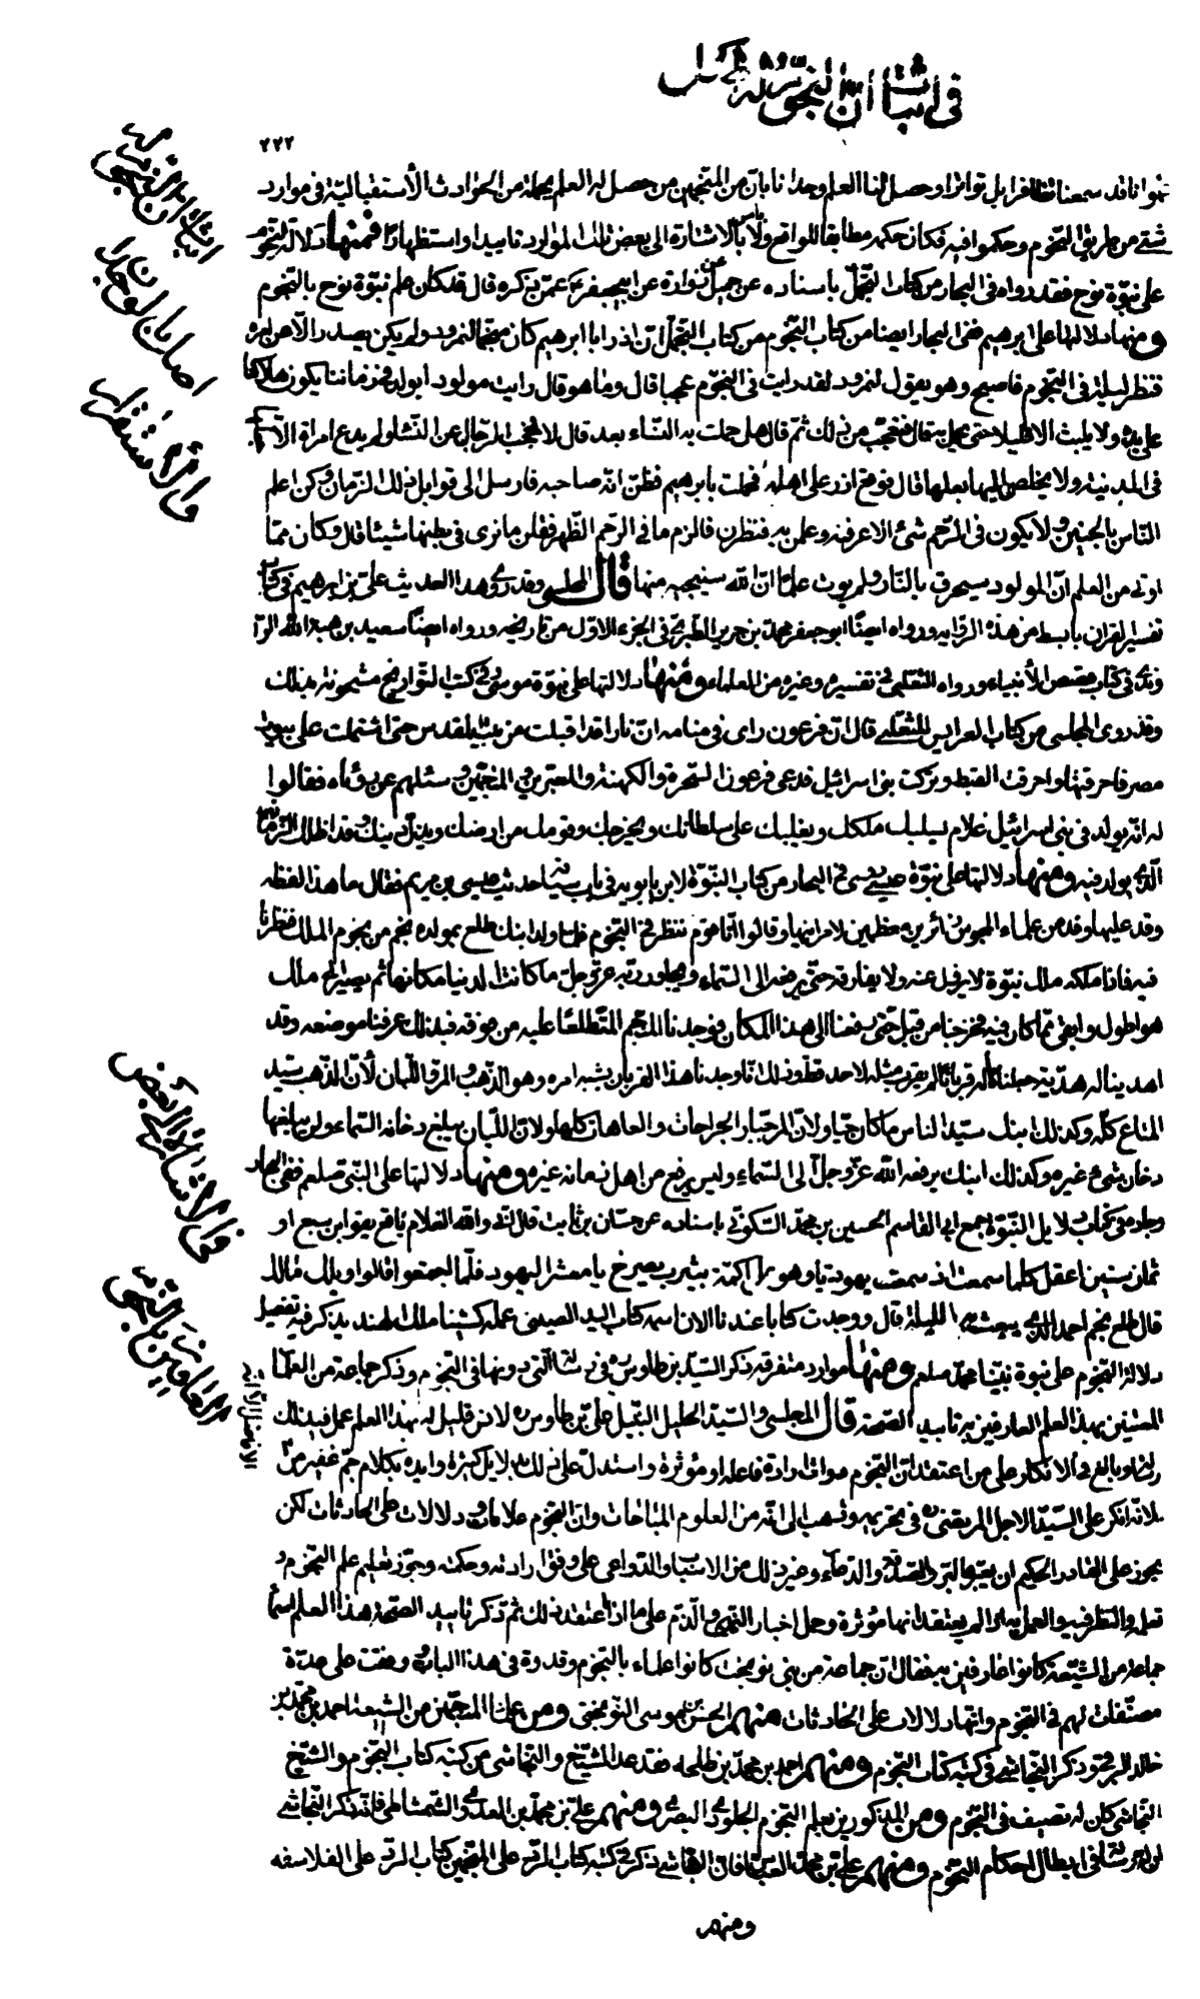 في اثبات ان النجوم
٢٢٢
قد سمعنا بل تواترا وحصل لنا العلم وجدانا بان من المنجمين من حصل له العلم بجملة من الحوادث الأستقبالية في موارد
شتى من طريق النجوم وحكموا فيه فكان حكمهم مطابقا للواقع ولا بأس بالاشارة الى بعض تلك الموارد تاييدا واستظهارا فمنها دلالة النجوم
على نبوة نوح فقد رواه في البحار من كتاب التجمل باسناده عن جميل عن زرارة عن ابيجعفر عمن ذكره قال قد كان علم نبوة نوح بالنجوم
ومنها دلالتها على ابرهيم ففي البحار ايضا من كتاب النجوم من كتاب التجمل ان اذر ابا ابرهيم كان منجما لنمرود ولم يكن يصدر الا عن امره
فنظر ليلة في النجوم فاصبح وهو يقول لنمرود لقد رايت في النجوم عجبا قال وما هو قال رايت مولودا يولد في زماننا يكون هلاكنا
على يديه ولا يلبث الا قليلا حتى يحمل به قال فتعجب من ذلك ثم قال هل حملت به النساء بعد قال لا فحجب الرجال عن النساء ولم يدع امراة الا
في المدينة ولا يخلص اليها بعلها قال فوقع ازر على اهله فحملت بابرهيم فظن انه صاحبه فارسل الى قوابل ذلك الزمان وكن اعلم
الناس بالجنين ولا يكون في الرحم شئ الا عرفنه وعلمن به فنظرن فالزم ما في الرحم الظهر فقلن ما نرى في بطنها شيئا قال وكان مما
اوتى من العلم ان المولود سيحرق بالنار ولم يوت علما ان الله سينجيه منها قال المجلسي وقد روى هذا الحديث علي بن ابرهيم في كتاب
تفسير القران بابسط من هذه الرواية ورواه ايضا ابو جعفر محمد بن جرير الطبري في الجزء الاول من تاريخه ورواه ايضا سعيد بن هبة الله الرا
وندي في كتاب قصص الأنبياء ورواه الثعلبي في تفسيره وغيره من العلماء ومنها دلالتها على نبوة موسى في كتب التواريخ مشحونة بذلك
وقد روى المجلسي من كتاب العرايس للثعلبي قال ان فرعون راى في منامه ان نارا قد اقبلت من بيت المقدس حتى اشتملت على بيوت
مصر فاحرقتها واحرقت القبط وتركت بني اسرائيل فدعى فرعون السحرة والكهنة والمعبرين والمنجمين وسئلهم عن رؤياه فقالوا
له انه يولد في بني اسرائيل غلام يسلبك ملكك ويغلبك على سلطانك ويخرجك وقومك من ارضك ويبدل دينك وقد اظلك الزمان
الذي يولد فيه ومنها دلالتها على نبوة عيسى في البحار من كتاب النبوة لابن بابويه في باب سياقة حديث عيسى بن مريم فقال ما هذا لفظه
وقد عليها وفد من علماء المجوس زائرين معظمين لامر ابنها وقالوا انا قوم ننظر في النجوم فلما ولد ابنك طلع بمولده نجم من نجوم الملك فنظرنا
فيه فاذا ملكه ملك نبوة لا يزيل عنه ولا يفارقه حتى يرفعه الى السماء ويجاور ربه عز وجل ما كانت الدنيا مكانها ثم يصير الى ملك
هو اطول وابقى مما كان فيه فخرجنا من قبل حتى رفعنا الى هذا المكان فوجدنا النجم المتطلعا عليه من فوقه فبذلك عرفنا موضعه وقد
اهدينا له هدية جعلناها له قربانا لم يقرب مثله لاحد قط وذلك انا وجدنا هذا القربان يشبه امره وهو الذهب والمر واللبان لأن الذهب سيد
المتاع كله وكذلك ابنك سيد الناس ما كان حيا ولان المر جبار الجراحات والعاهات كلها ولان اللبان يبلغ دخانه السماء ولن يبلغها
دخان شئ غيره وكذلك ابنك يرفعه الله عز وجل الى السماء وليس يرفع من اهل زمانه غيره ومنها دلالتها على النبي صلعم ففي البحار
وجدت في كتاب دلايل النبوة جمع ابي القاسم الحسين بن محمد السكوني باسناده عن حسان بن ثابت قال اني والله لغلام يافع يفو ابن سبع او
ثمان سنين اعقل كلما سمعت اذ سمعت يهوديا وهو على اكمة بيثرب يصرخ يا معشر اليهود فلما اجتمعوا قالوا ويلك مالك
قال طلع نجم احمد الذي يبعث به الليلة قال ووجدت كتابا عندنا الان اسمه كتاب اليد الصيني عمله كشينا ملك الهند يذكر فيه تفصيل
دلالة النجوم على نبوة نبينا محمد صلعم ومنها موارد متفرقه ذكر السيد بن طاوس ره في رسالة التي دونها في النجوم وذكر جماعة من العلماء
المعتنين بهذا العلم العارفين به تاييد الصحة قال المجلسي والسيد الجليل النبيل علي بن طاوس ره لانس قليل له بهذا العلم عمل في ذلك
رسالة وبالغ في الانكار على من اعتقد ان النجوم ذوات ارادة فاعلة او مؤثرة واستدل على ذلك بدلايل كثيرة وايده بكلام جم غفير من
الا انه انكر على السيد الاجل المرتضى ره في تحريمه وذهب الى انه من العلوم المباحات وان النجوم علامات ودلالات على الحادثات لكن
يجوز على القادر الحكيم ان يغيرها بالبر والصدقة والدعاء وغير ذلك من الاسباب والدواعي على وفق ارادته وحكمته وجوز تعليم علم النجوم و
تعلمه والنظر فيه والعمل به اذا لم يعتقد انها مؤثرة وحمل اخبار النهي والذم على ما اذا اعتقد ذلك ثم ذكر تاييد الصحة هذا العلم اسما
جماعة من الشيعة كانوا عارفين به فقال ان جماعة من بني نوبخت كانوا علماء بالنجوم وقدوة في هذا الباب ووقفت على عدة
مصنفات لهم في النجوم وانها دلالات على الحادثات منهم الحسن بن موسى النوبختي ومن علماء المنجمين من الشيعة احمد بن محمد بن
خالد البرقي وذكر النجاشي في كتبه كتاب النجوم ومنهم احمد بن محمد بن طلحة فقد عد الشيخ والنجاشي من كتبه كتاب النجوم والشيخ
النجاشي كان له تصنيف في النجوم ومن المذكورين بعلم النجوم الجلودي البصري ومنهم علي بن محمد بن العدوي الشمشاطي فانه ذكر النجاشي
ان له رسالة في ابطال احكام النجوم ومنهم علي بن محمد العباس فان النجاشي ذكر في كتبه كتاب الرد على المنجمين كتاب الرد على الفلاسفه
ومنهم